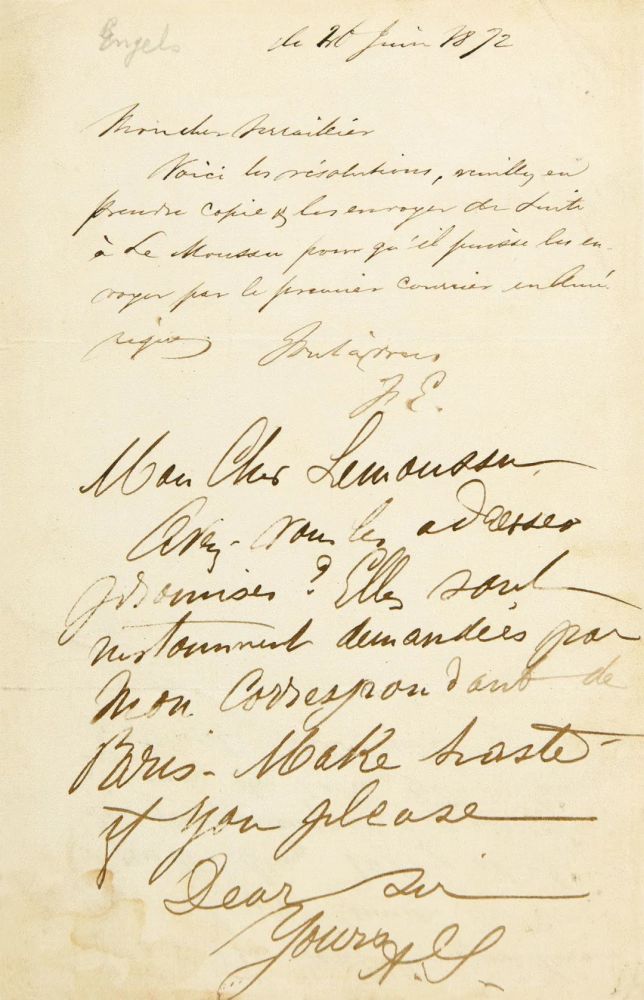 Engels
le 26 Juin 1872
Mon cher Serraillier
Voici les résolutions, veuillez en
prendre copie & les envoyer de suite
à Le Moussu pour qu'il puisse les en-
voyer par le premier courrier en Amé-
rique.
Tout à vous
F. E.
Mon Cher Lemoussu
Avez-vous les adresses
promises? Elles sont
instamment demandées par
mon Correspondant de
Paris - Make haste
if you please
Dear sir
Yours A. S.